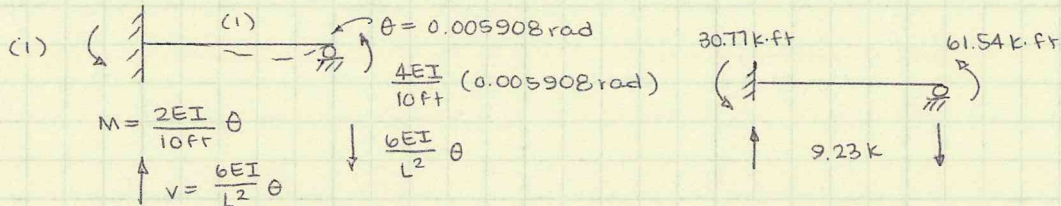 (1)
(1)
θ = 0.005908 rad
4EI/10ft (0.005908 rad)
M = 2EI/10ft θ
V = 6EI/L² θ
6EI/L² θ
30.77 k·ft
61.54 k·ft
9.23 k